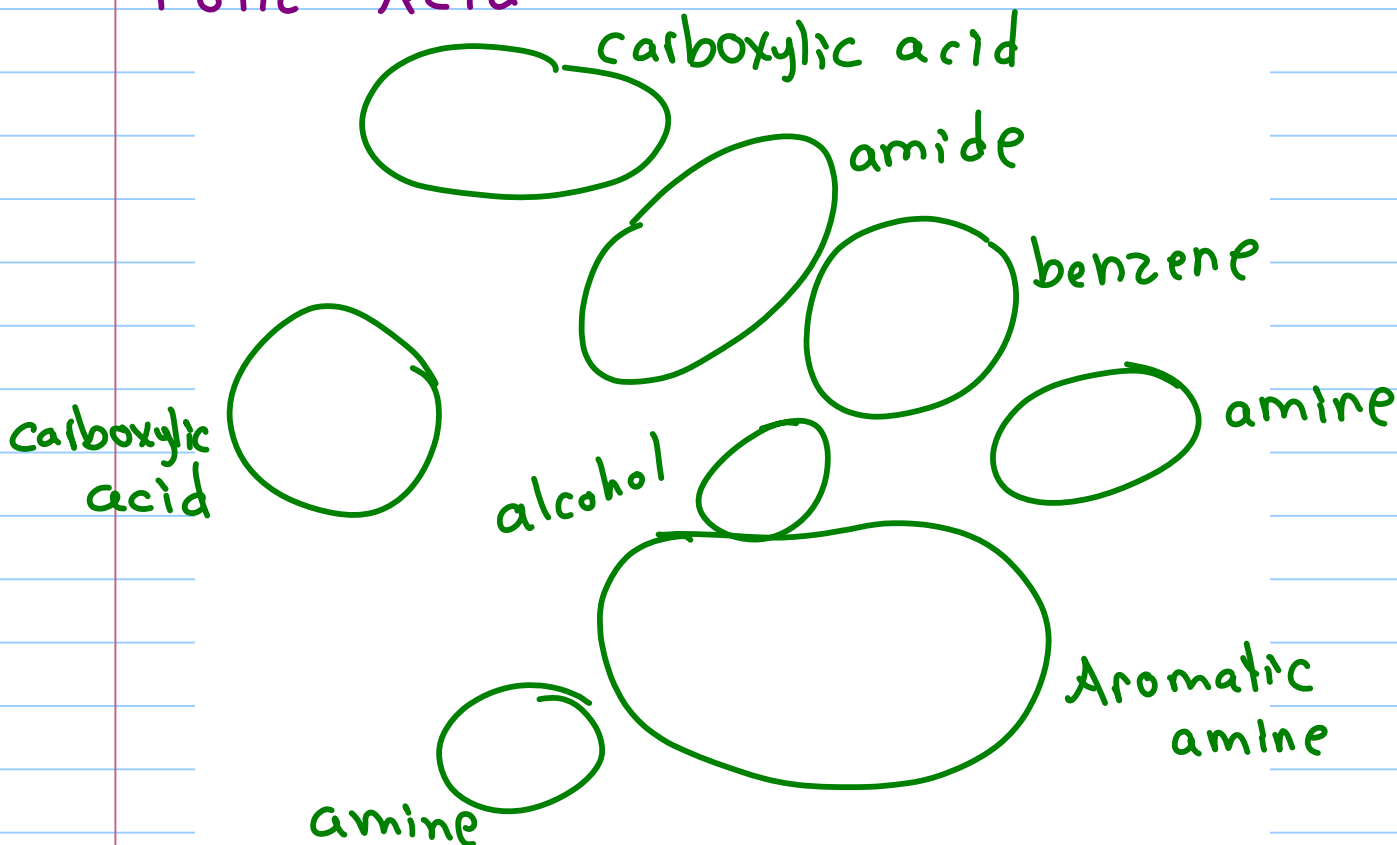 Folic Acid
carboxylic acid
amide
benzene
amine
carboxylic
acid
alcohol
Aromatic
amine
amine